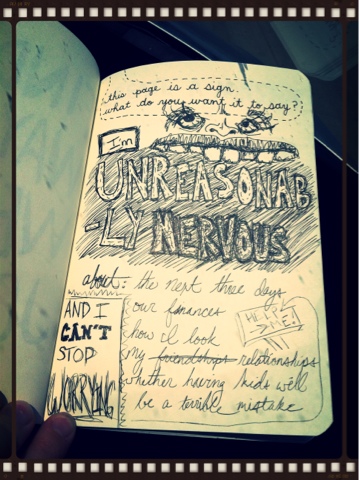 this page is a sign.
what do you want it to say?
I'm
UNREASONAB
-LY NERVOUS
about: the next three days
our finances
how I look
my friendships relationships
whether having kids will
be a terrible mistake
HELP
ME!
AND I
CAN'T
STOP
WORRYING